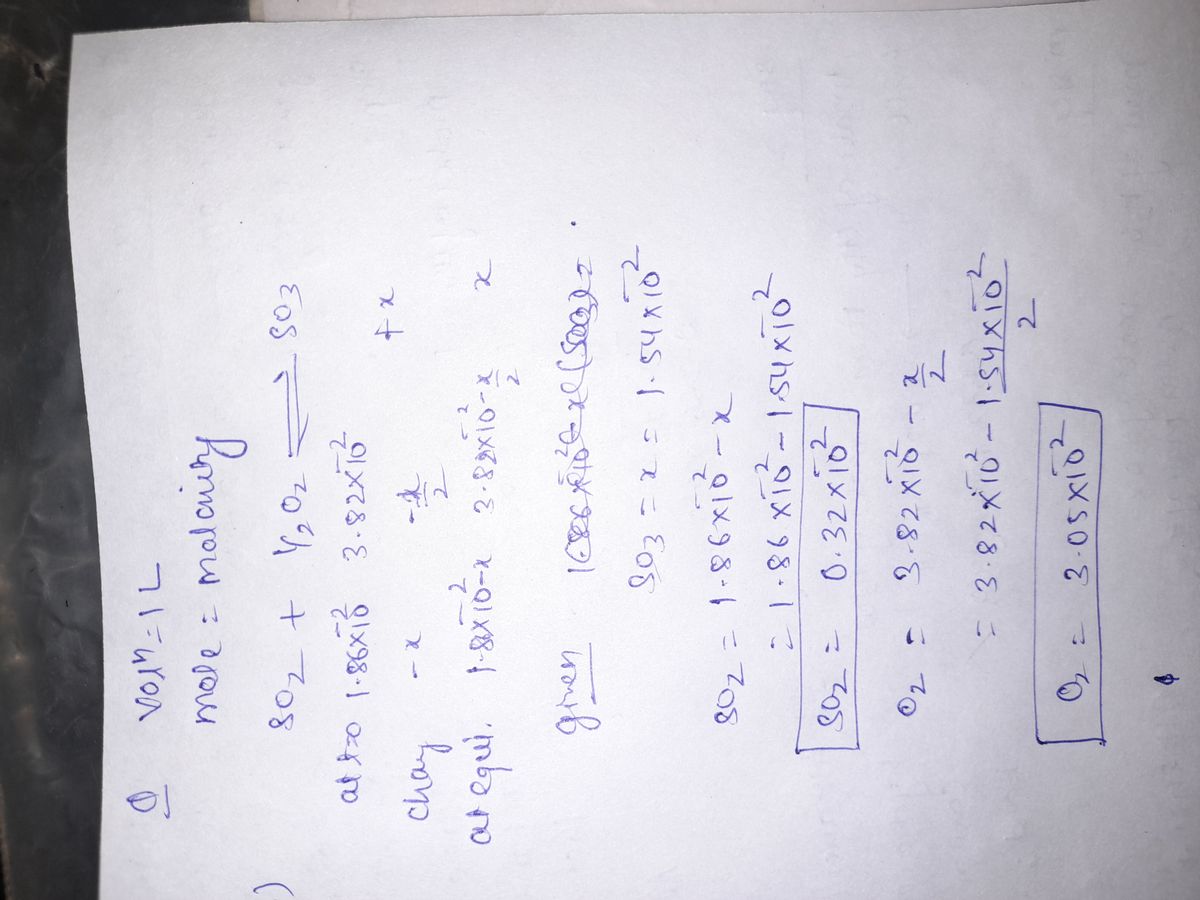 Q Volⁿ = 1 L
mole = molarity
) SO₂ + ½O₂ ⇌ SO₃
at t=0 1.86×10⁻² 3.82×10⁻²
chang -x -x/2 +x
at equi. 1.8×10⁻²-x 3.82×10⁻²-x/2 x
given
SO₃ = x = 1.54×10⁻²
SO₂ = 1.86×10⁻² - x
= 1.86×10⁻² - 1.54×10⁻²
SO₂ = 0.32×10⁻²
O₂ = 3.82×10⁻² - x/2
= 3.82×10⁻² - 1.54×10⁻²/2
O₂ = 3.05×10⁻²